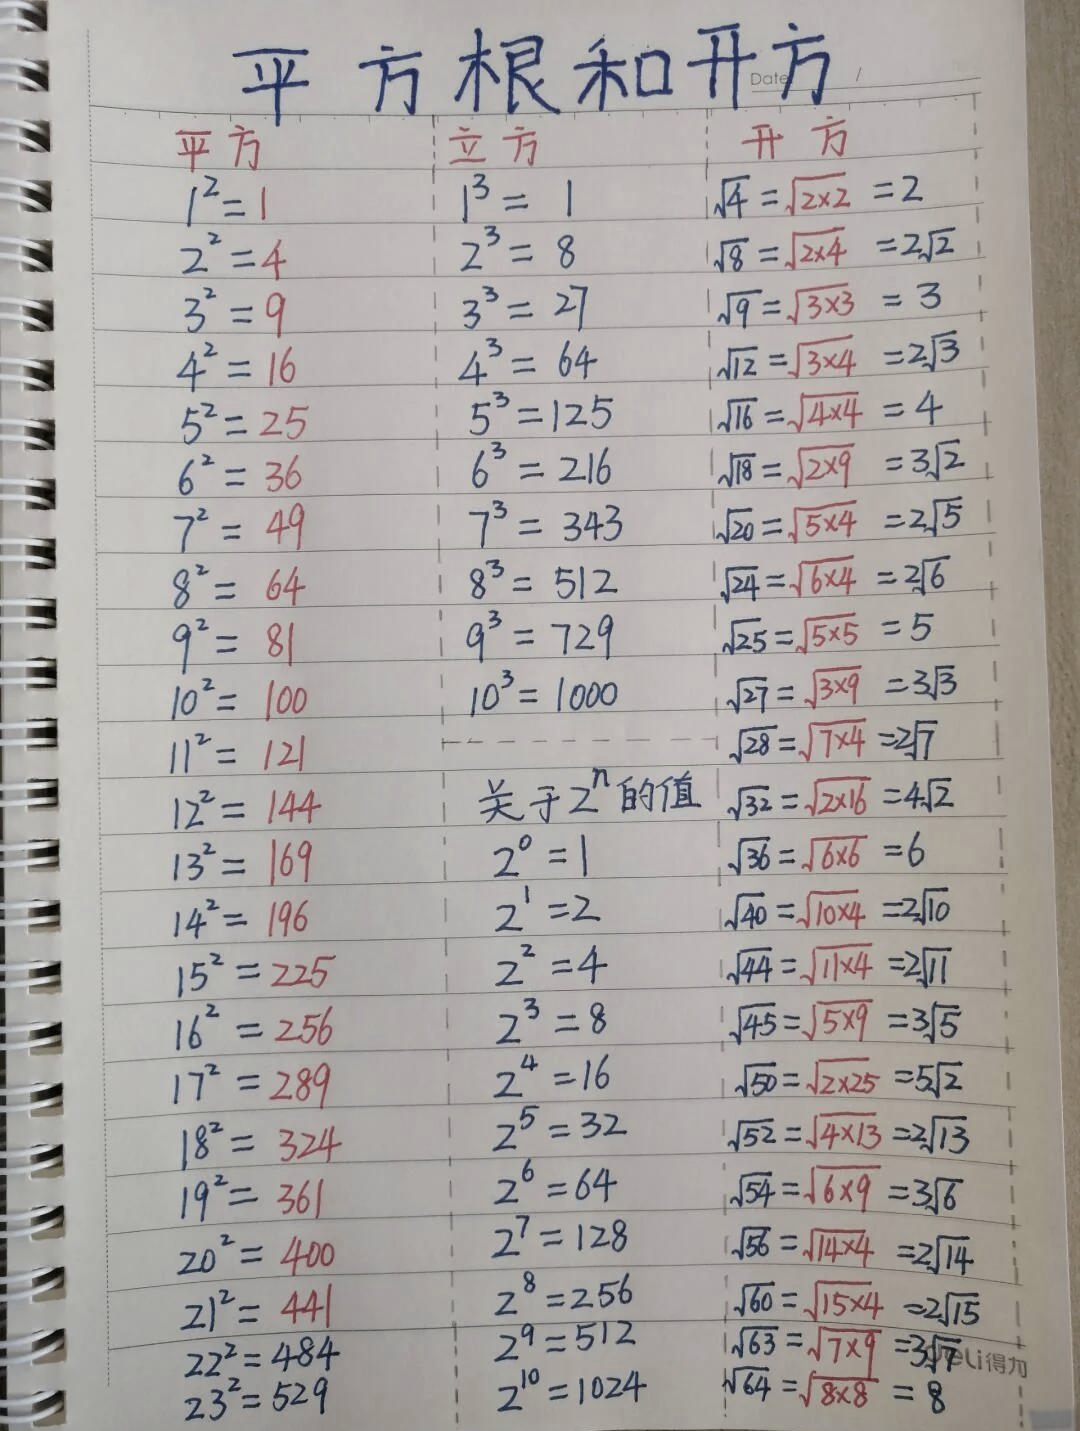 平方根和开方
Date /
平方
1²=1
2²=4
3²=9
4²=16
5²=25
6²=36
7²=49
8²=64
9²=81
10²=100
11²=121
12²=144
13²=169
14²=196
15²=225
16²=256
17²=289
18²=324
19²=361
20²=400
21²=441
22²=484
23²=529
立方
1³=1
2³=8
3³=27
4³=64
5³=125
6³=216
7³=343
8³=512
9³=729
10³=1000
关于2ⁿ的值
2⁰=1
2¹=2
2²=4
2³=8
2⁴=16
2⁵=32
2⁶=64
2⁷=128
2⁸=256
2⁹=512
2¹⁰=1024
开方
√4=√2×2=2
√8=√2×4=2√2
√9=√3×3=3
√12=√3×4=2√3
√16=√4×4=4
√18=√2×9=3√2
√20=√5×4=2√5
√24=√6×4=2√6
√25=√5×5=5
√27=√3×9=3√3
√28=√7×4=2√7
√32=√2×16=4√2
√36=√6×6=6
√40=√10×4=2√10
√44=√11×4=2√11
√45=√5×9=3√5
√50=√2×25=5√2
√52=√4×13=2√13
√54=√6×9=3√6
√56=√14×4=2√14
√60=√15×4=2√15
√63=√7×9=3√7
√64=√8×8=8
deli得力